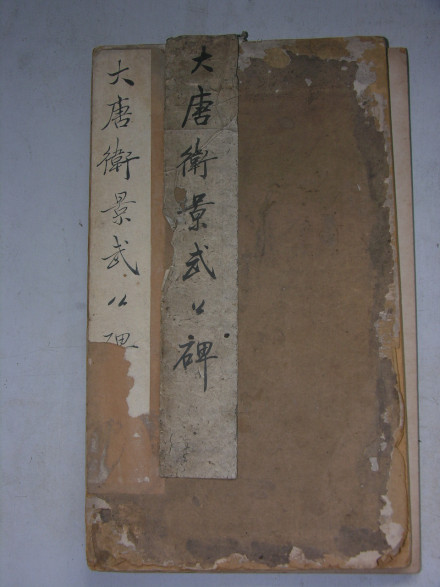 大唐衛景武公碑
大唐衛景武公碑